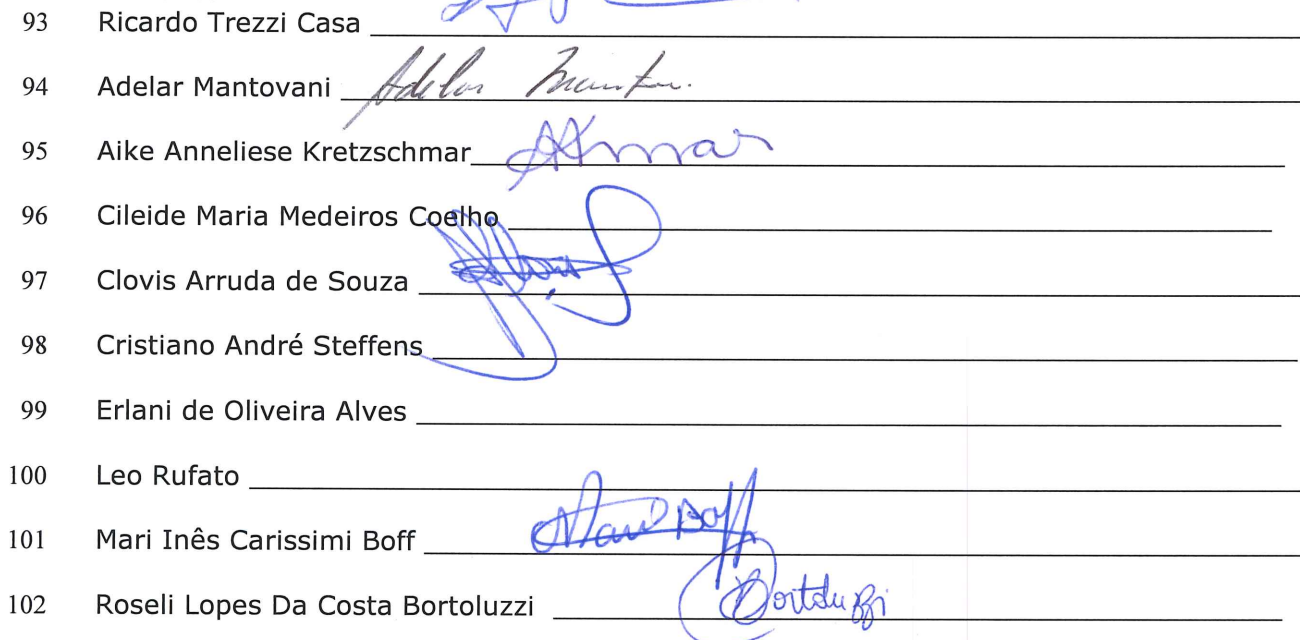 93 Ricardo Trezzi Casa
94 Adelar Mantovani Adelar
95 Aike Anneliese Kretzschmar
96 Cileide Maria Medeiros Coelho
97 Clovis Arruda de Souza
98 Cristiano André Steffens
99 Erlani de Oliveira Alves
100 Leo Rufato
101 Mari Inês Carissimi Boff Mari Boff
102 Roseli Lopes Da Costa Bortoluzzi Bortoluzzi